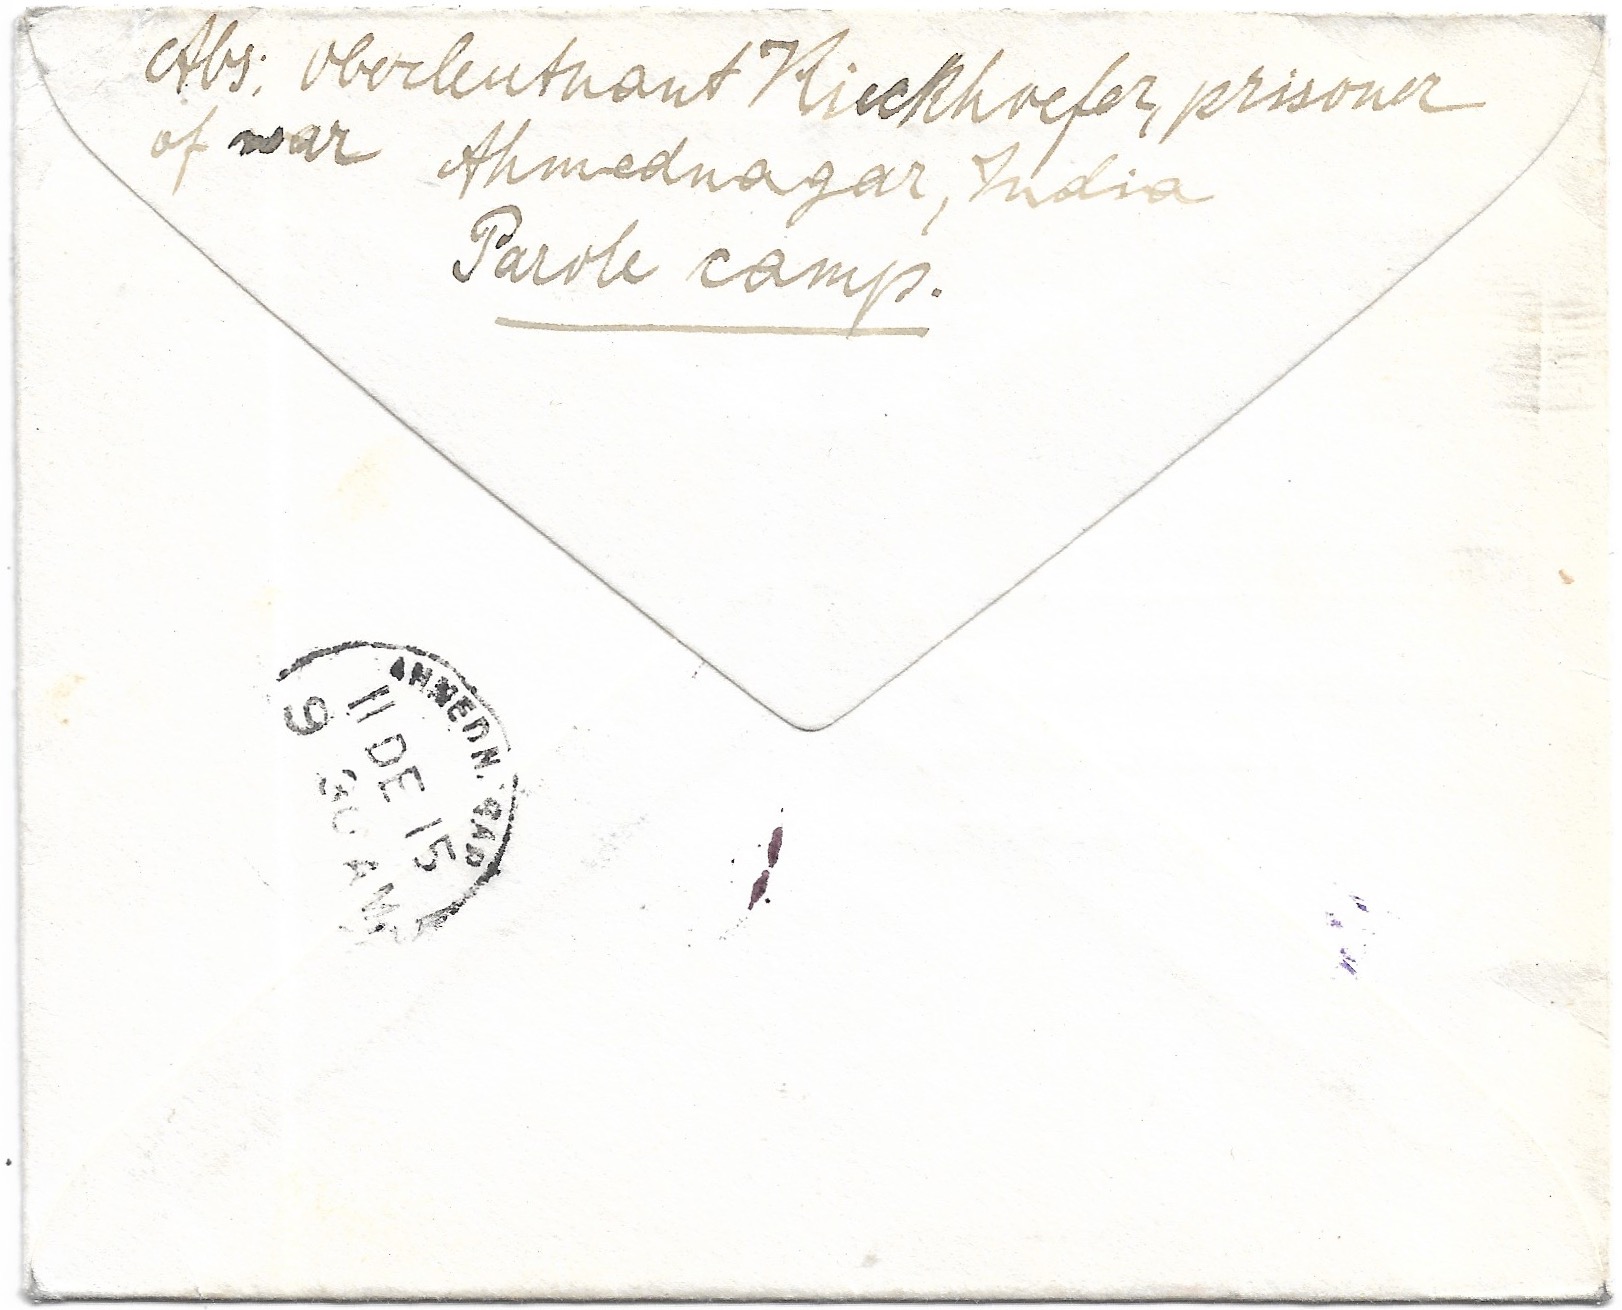 Abs: Oberleutnant Kieckhoefer, prisoner
of war Ahmednagar, India
Parole camp.
AHMEDNAGAR
11 DE 15
9 30 AM